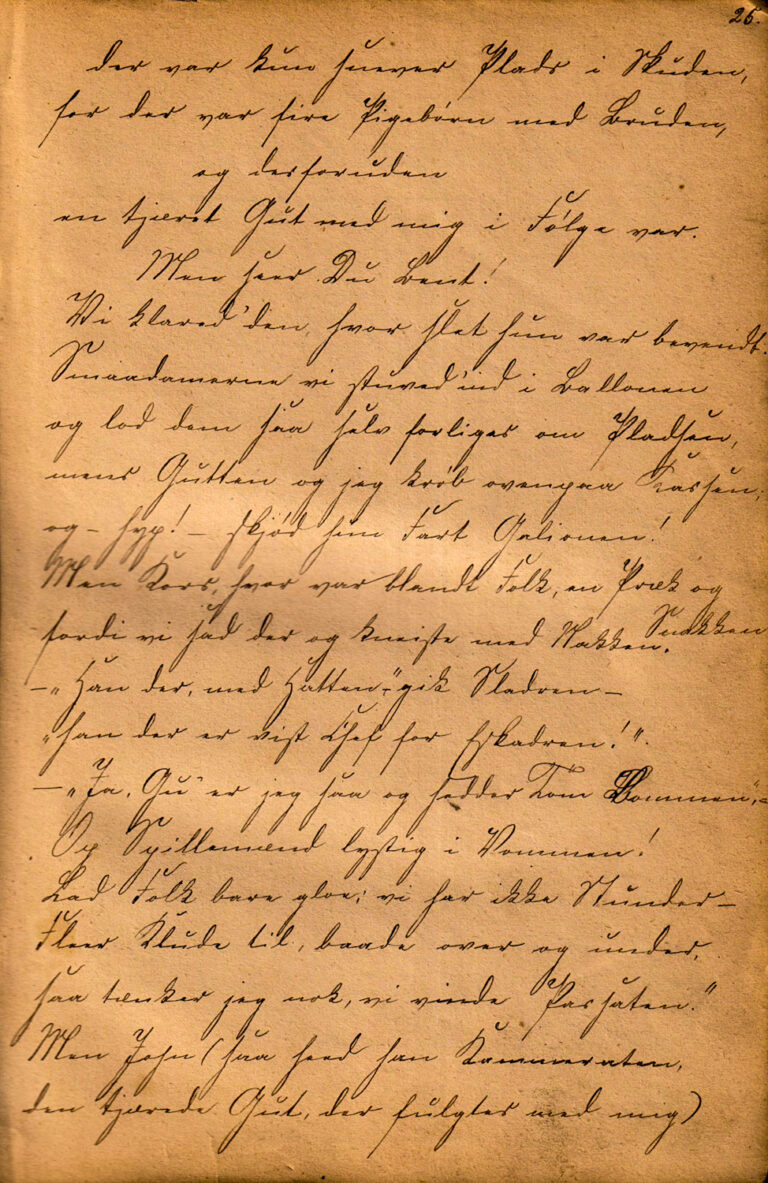 25.
der var kun snever Plads i Skuden,
for der var fire Pigebørn med Bruden,
og desforuden
en tjæret Gut med mig i Følge var.
Men seer Du Bent!
Vi klared' den, hvor slet hun var bevendt.
Smaadamerne vi stuved' ind i Ballonen
og lod dem saa selv forliges om Pladsen,
mens Gutten og jeg krøb ovenpaa Kassen;
og – hyp! – skjød hun Fart Galionen!
Men Kors, hvor var blandt Folk, en Præk og
Snakken
fordi vi sad der og kneiste med Nakken.
– „Han der, med Hatten", gik Sladren –
„han der er vist Chef for Eskadren!".
– „Ja, Gu' er jeg saa og hedder Tom Bommen", –
Op Spillemænd lystig i Vommen!
Lad Folk bare gloe; vi har ikke Stunder –
Fleer Klude til, baade over og under,
saa tænker jeg nok, vi vinde Passaten."
Men John (saa heed han Kammeraten,
den tjærede Gut, der fulgtes med mig)